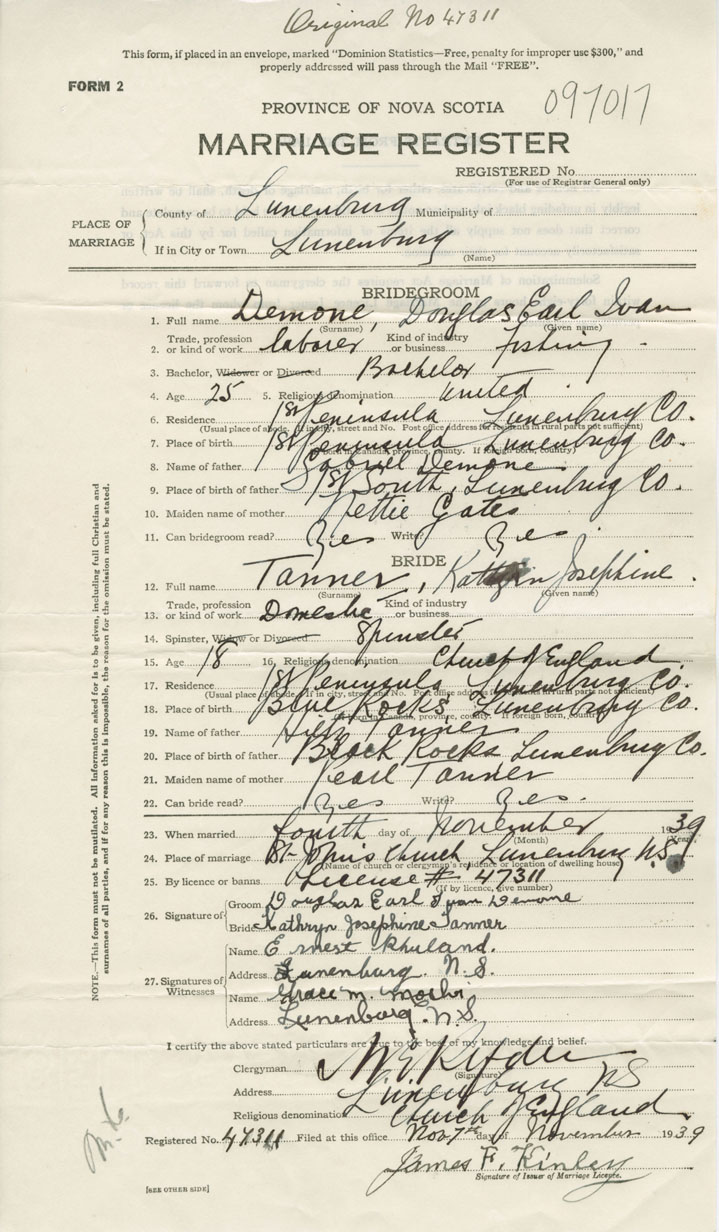 Original No 47311
This form, if placed in an envelope, marked "Dominion Statistics—Free, penalty for improper use $300," and
properly addressed will pass through the Mail "FREE".
FORM 2
097017
PROVINCE OF NOVA SCOTIA
MARRIAGE REGISTER
REGISTERED No.
(For use of Registrar General only)
PLACE OF MARRIAGE
County of Lunenburg Municipality of
If in City or Town Lunenburg
(Name)
BRIDEGROOM
1. Full name Demone, Douglas Earl Ivan
(Surname) (Given name)
2. Trade, profession or kind of work laborer Kind of industry or business fishing
3. Bachelor, Widower or Divorced Bachelor
4. Age 25 5. Religious denomination United
6. Residence 1st Peninsula Lunenburg Co.
(Usual place of abode. If in city, street and No. Post office address for residents in rural parts not sufficient)
7. Place of birth 1st Peninsula Lunenburg Co.
(If born in Canada, province, county. If foreign born, country)
8. Name of father Gabriel Demone
9. Place of birth of father 1st South, Lunenburg Co.
10. Maiden name of mother Nettie Gates
11. Can bridegroom read? Yes Write? Yes
BRIDE
12. Full name Tanner, Kathryn Josephine.
(Surname) (Given name)
13. Trade, profession or kind of work Domestic Kind of industry or business
14. Spinster, Widow or Divorced Spinster
15. Age 18 16. Religious denomination Church of England
17. Residence 1st Peninsula Lunenburg Co.
(Usual place of abode, if in city, street and No. Post office address for residents in rural parts not sufficient)
18. Place of birth Blue Rocks Lunenburg Co.
(If born in Canada, province, county. If foreign born, country)
19. Name of father Tanner
20. Place of birth of father Black Rocks Lunenburg Co.
21. Maiden name of mother Pearl Tanner
22. Can bride read? Yes Write? Yes.
23. When married fourth day of November 1939
(Month) (Year)
24. Place of marriage St. John's Church, Lunenburg N.S.
(Name of church or clergyman's residence or location of dwelling house)
25. By licence or banns License # 47311
(If by licence, give number)
26. Signature of
Groom Douglas Earl Ivan Demone
Bride Kathryn Josephine Tanner
27. Signatures of Witnesses
Name Ernest Rhuland.
Address Lunenburg. N.S.
Name Grace M.
Address Lunenburg. N.S.
I certify the above stated particulars are true to the best of my knowledge and belief.
Clergyman
(Signature)
Address Lunenburg NS
Religious denomination Church of England
Registered No. 47311 Filed at this office Nov 7th day of November 1939
James F. Kinley
Signature of Issuer of Marriage Licence.
[SEE OTHER SIDE]
NOTE.—This form must not be mutilated. All information asked for is to be given, including full Christian and
surnames of all parties, and if for any reason this is impossible, the reason for the omission must be stated.